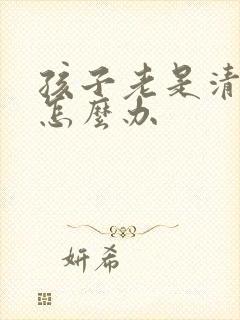 孩子老是清
怎麼办
妍希